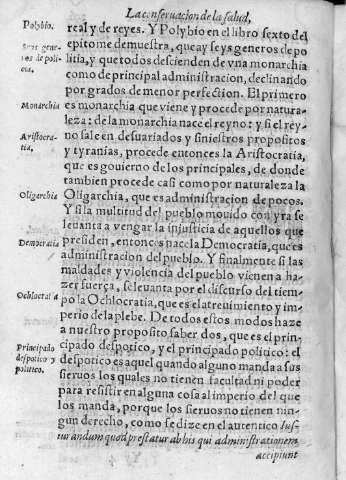 La conseruacion de la salud,
Polybio.
real y de reyes. Y Polybio en el libro sexto del
Seys gene-
ros de poli-
cia.
epitome demuestra, que ay seys generos de po
litia, y que todos descienden de vna monarchia
como de principal administracion, declinando
por grados de menor perfection. El primero
Monarchia
es monarchia que viene y procede por natura-
leza: de la monarchia nace el reyno: y si el rey-
Aristocra-
tia,
no sale en desuariados y siniestros propositos
y tyranias, procede entonces la Aristocratia,
que es gouierno de los principales, de donde
tambien procede casi como por naturaleza la
Oligarchia
Oligarchia, que es administracion de pocos.
Y si la multitud del pueblo mouido con yra se
leuanta a vengar la injusticia de aquellos que
Democratia
presiden, entonces nace la Democratia, que es
administracion del pueblo. Y finalmente si las
maldades y violencia del pueblo vienen a ha-
Ochlocratia
zer fuerça, se leuanta por el discurso del tiem-
po la Ochlocratia, que es el atreuimiento y im-
perio de la plebe. De todos estos modos haze
a nuestro proposito saber dos, que es el prin-
Principado
despotico y
politico.
cipado despotico, y el principado politico: el
despotico es aquel quando alguno manda a sus
sieruos los quales no tienen facultad ni poder
para resistir en alguna cosa al imperio del que
los manda, porque los sieruos no tienen nin-
gun derecho, como se dize en el autentico Ius-
iurandum quod præstatur ab his qui administrationem
accipiunt